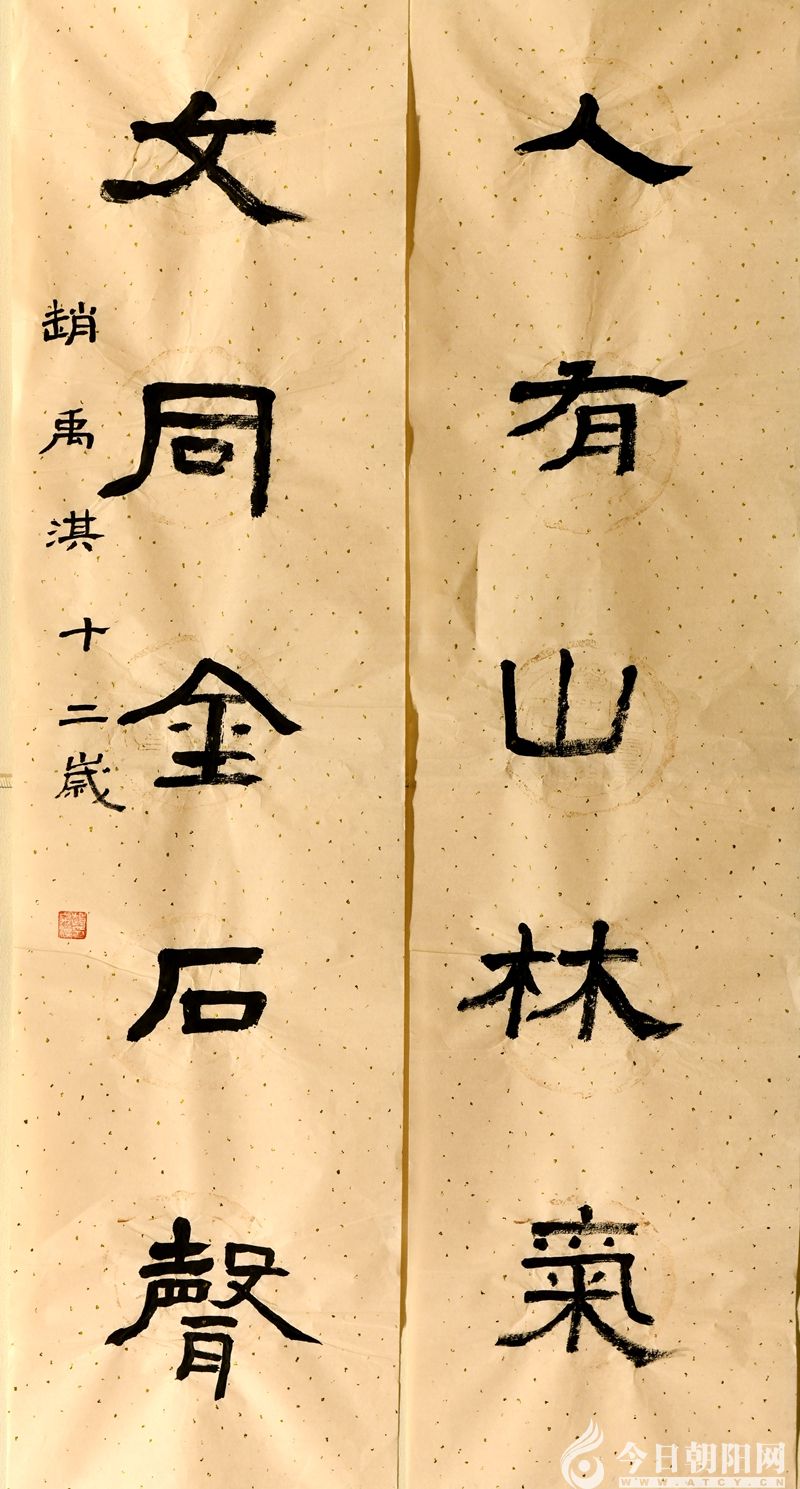 人有山林氣
文同金石聲
趙禹淇十二歲
今日朝阳网
WWW.ATCY.CN